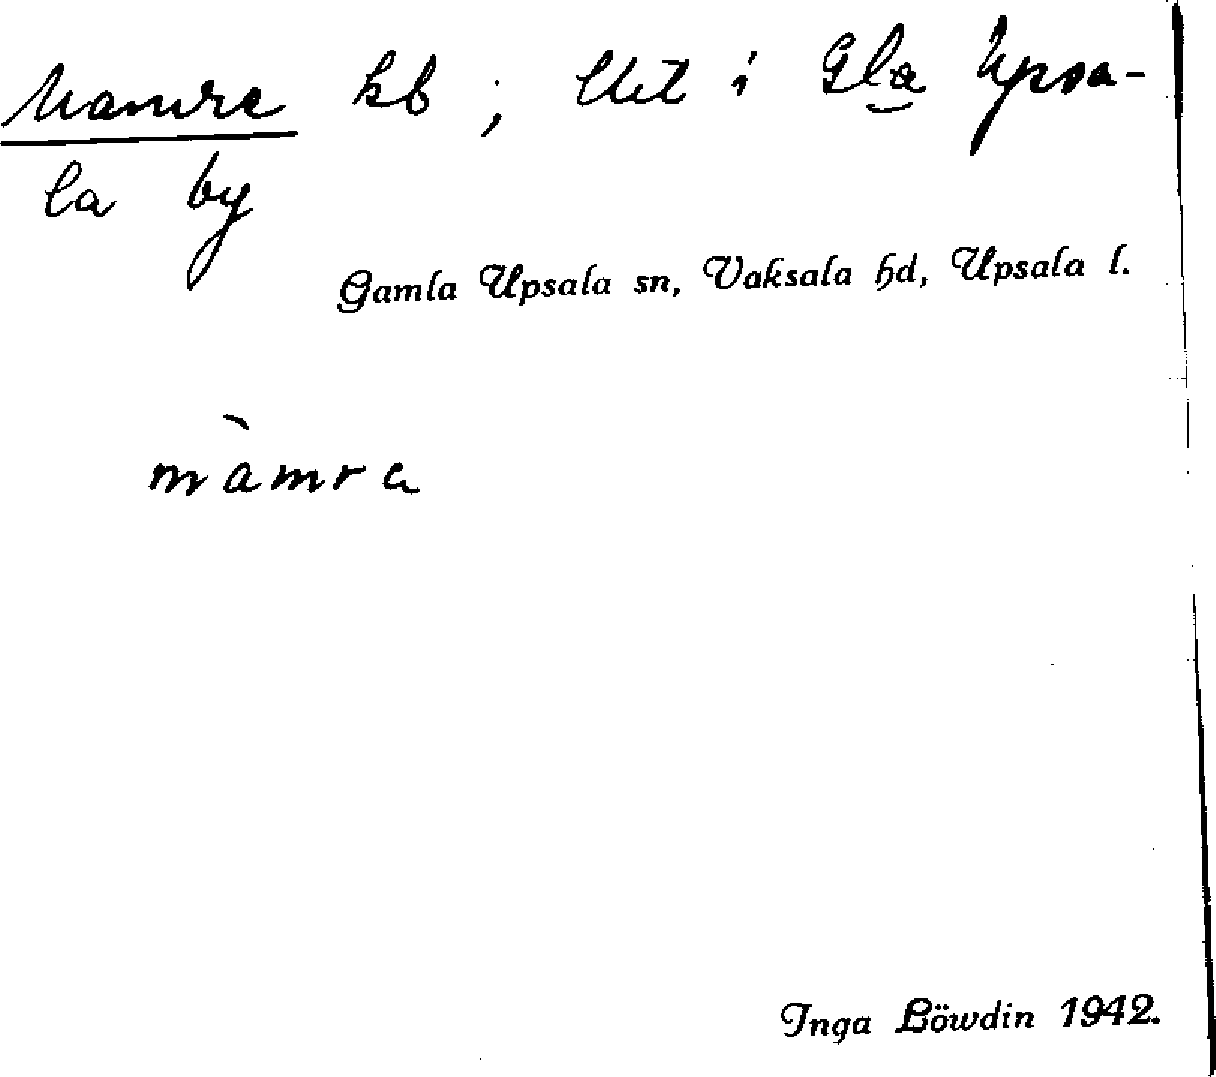 Mamre hb ; litt i Gla Upsa-
la by
Gamla Upsala sn, Vaksala hd, Upsala l.
màmra
Inga Löwdin 1942.